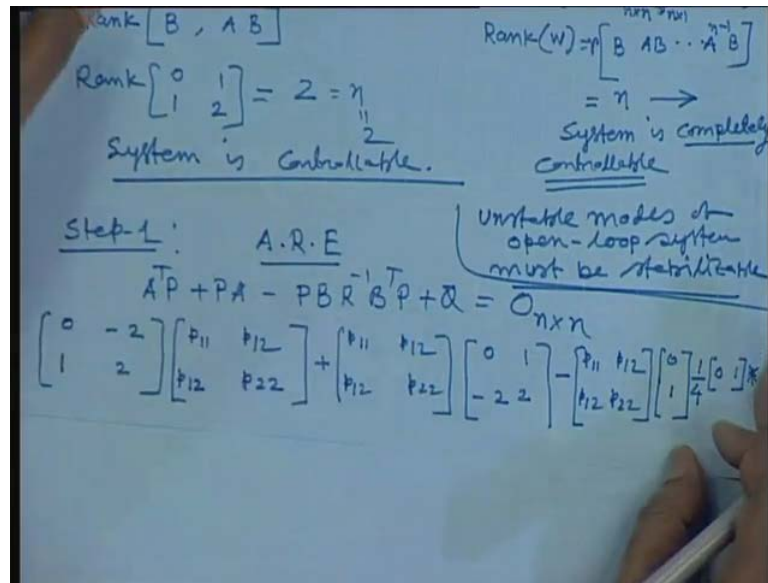 Rank [B , A B]
Rank [0 1; 1 2] = 2 = n = 2
System is Controllable.
n×n n×n
Rank(W) = r[B AB ·· A^{n-1} B]
= n →
System is completely
Controllable
Unstable modes of
open-loop system
must be stabilizable
Step-1 : A.R.E
A^T P + PA - PB R^{-1} B^T P + Q = O_{n×n}
[0 -2; 1 2] [p11 p12; p12 p22] + [p11 p12; p12 p22] [0 1; -2 2] - [p11 p12; p12 p22] [0; 1] 1/4 [0 1] *